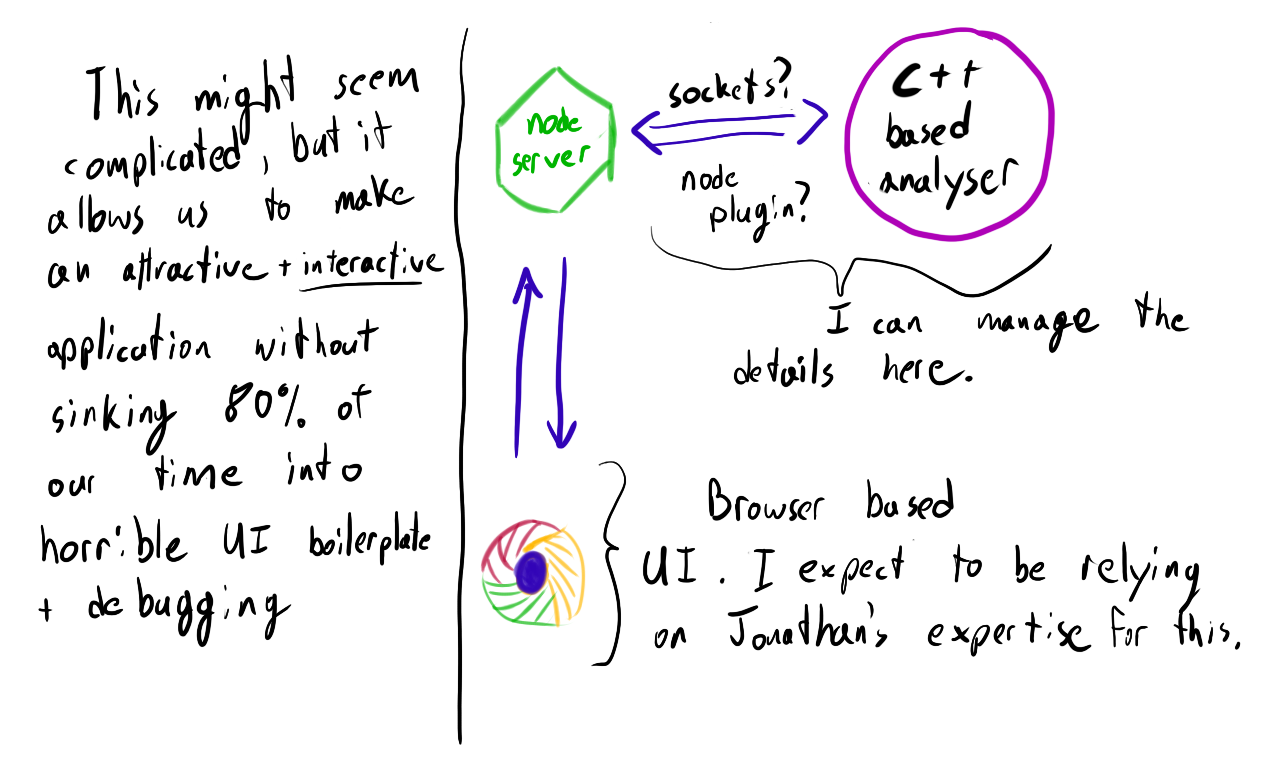 This might seem
complicated, but it
allows us to make
an attractive + interactive
application without
sinking 80% of
our time into
horrible UI boilerplate
+ debugging
node
server
sockets?
node
plugin?
C++
based
analyser
I can manage the
details here.
Browser based
UI. I expect to be relying
on Jonathan's expertise for this.